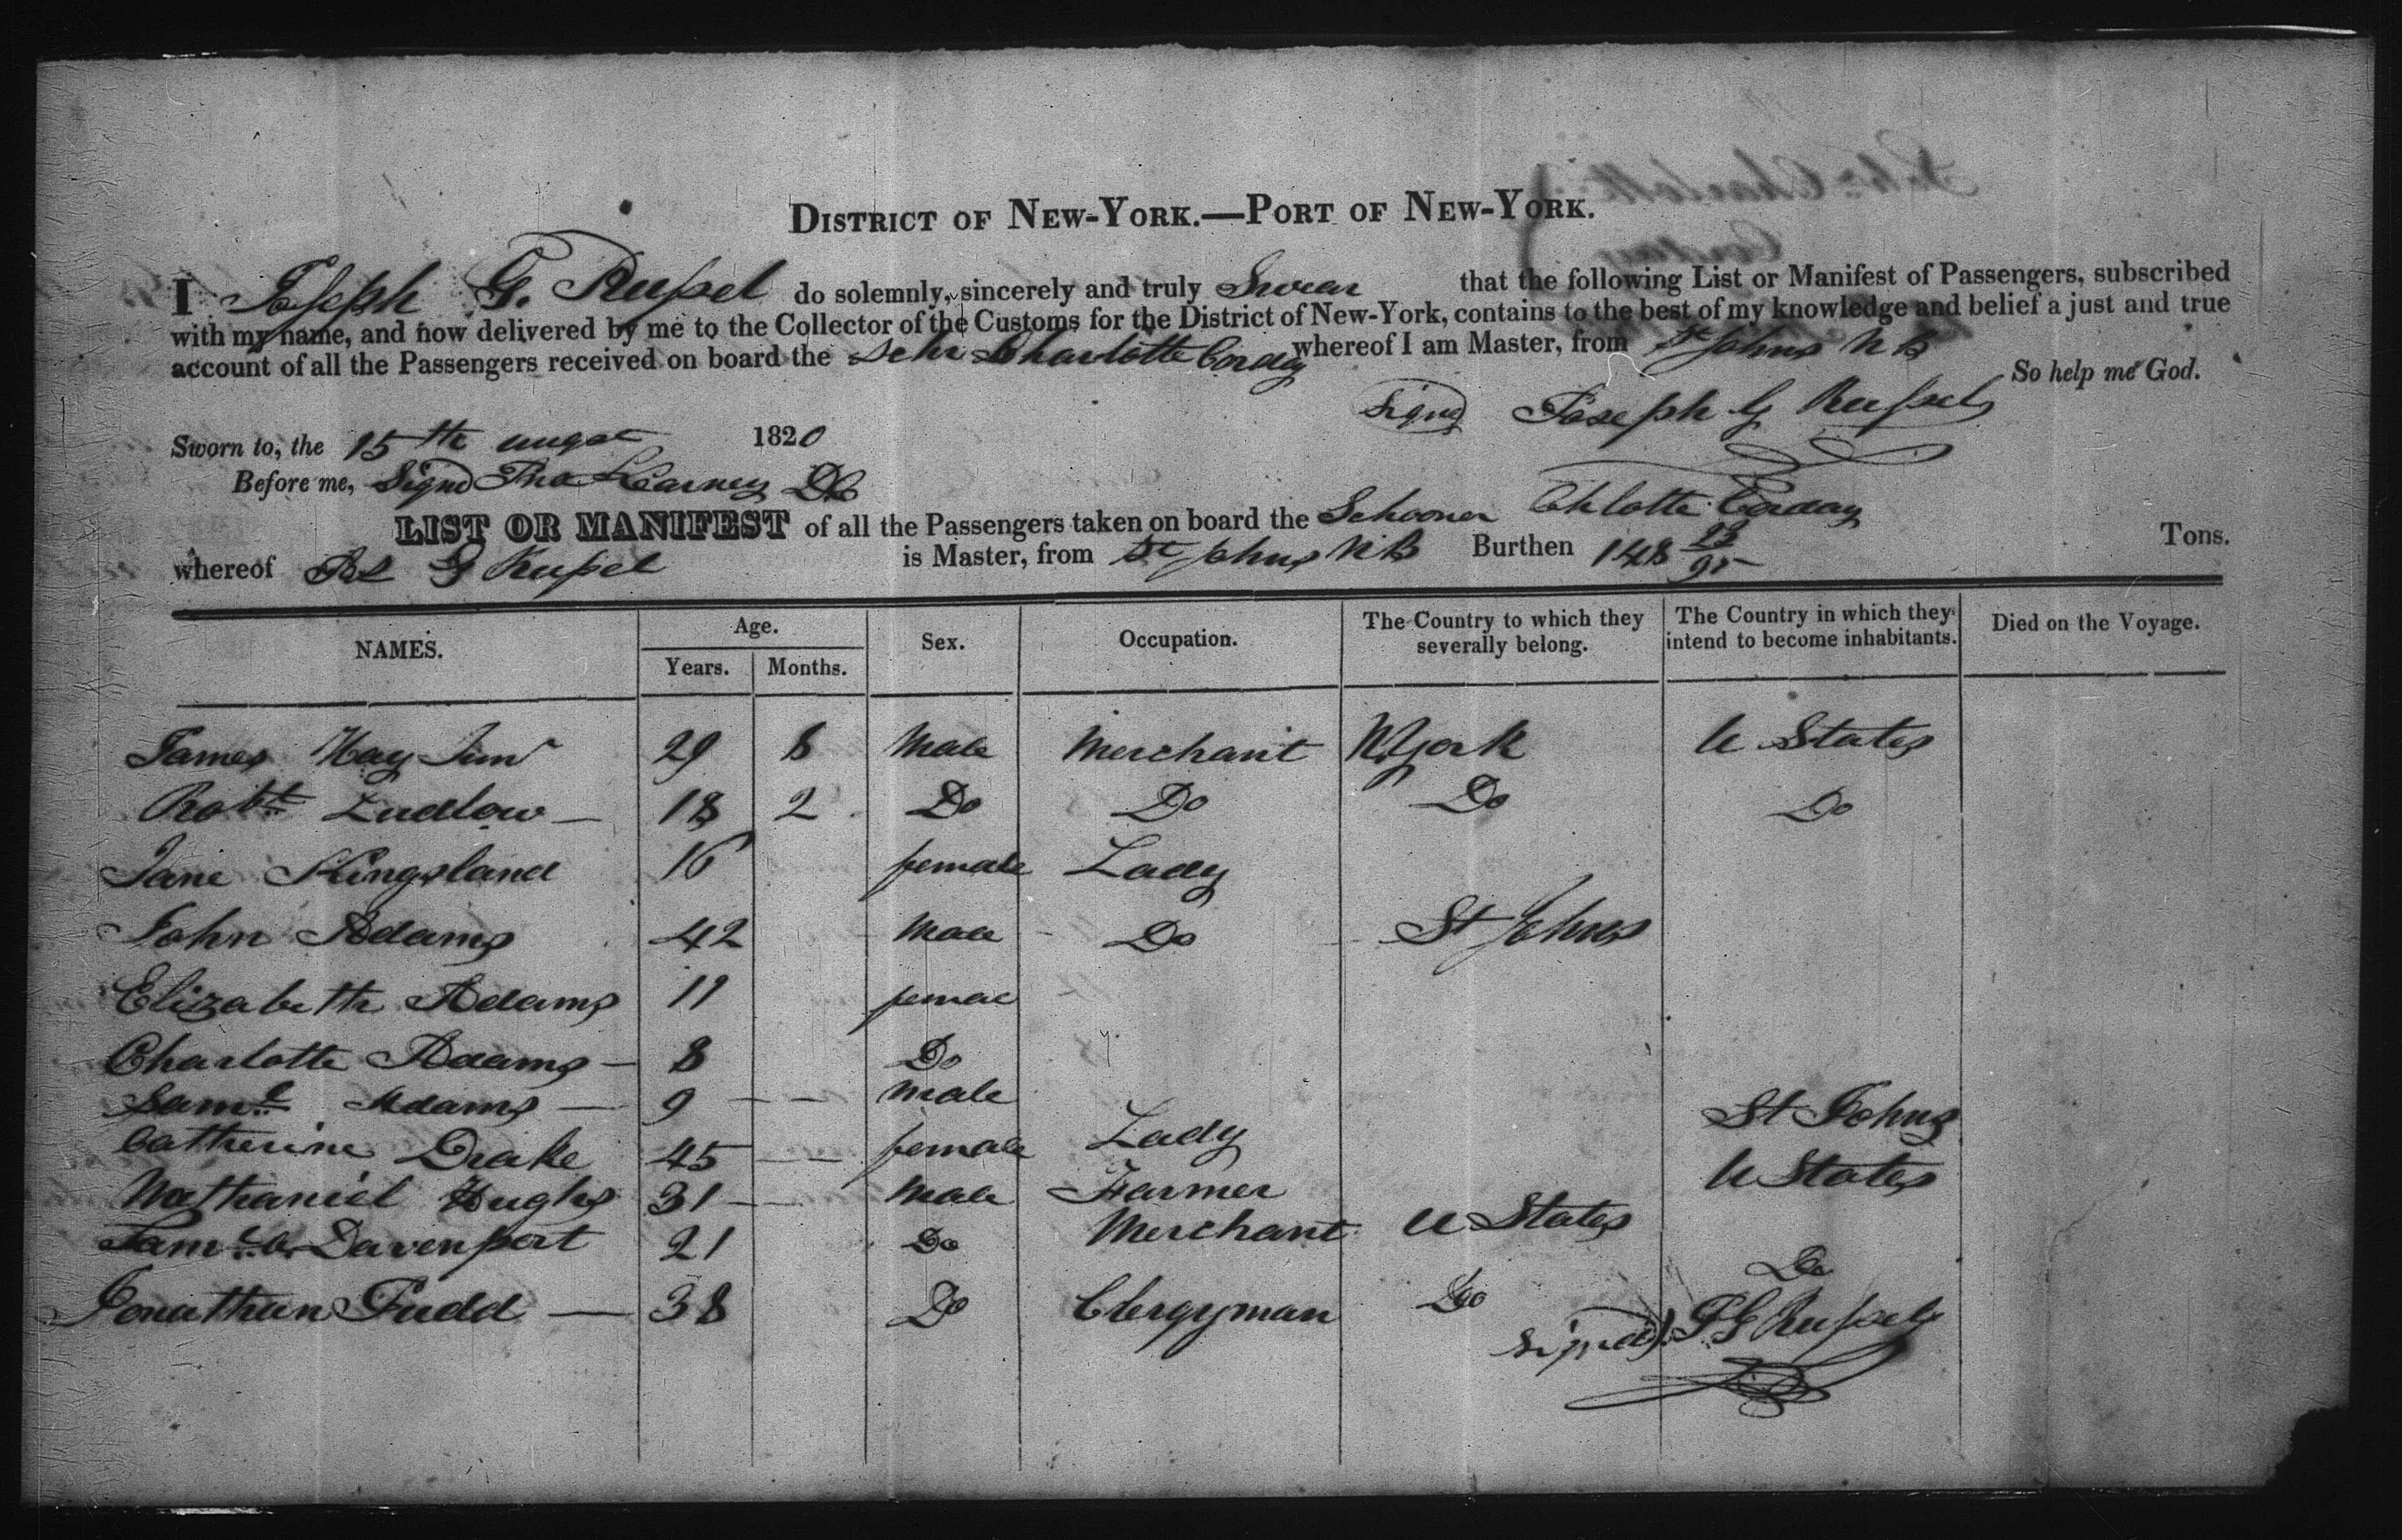 DISTRICT OF NEW-YORK.—PORT OF NEW-YORK.
I Joseph G. Russel do solemnly, sincerely and truly Swear that the following List or Manifest of Passengers, subscribed
with my name, and now delivered by me to the Collector of the Customs for the District of New-York, contains to the best of my knowledge and belief a just and true
account of all the Passengers received on board the Schr Charlotte Corday whereof I am Master, from St Johns N B
So help me God.
Signd Joseph G Russel
Sworn to, the 15th augst 1820
Before me, Signd Kearney DC
LIST OR MANIFEST of all the Passengers taken on board the Schooner Chlotte Corday
whereof G Russel is Master, from St Johns N B Burthen 148 23/95 Tons.
NAMES. Age. Years. Months. Sex. Occupation. The Country to which they severally belong. The Country in which they intend to become inhabitants. Died on the Voyage.
James Hay Junr 29 8 Male Merchant N York U States
Robt Ludlow — 18 2 Do Do Do Do
Jane Kingsland 16 female Lady
John Adams 42 Male Do St Johns
Elizabeth Adams 11 femae
Charlotte Adams — 8 Do
Saml Adams — 9 male
Catherine Drake 45 female Lady St Johns
Nathaniel Hughs 31 Male Farmer U States
Saml Davenport 21 Do Merchant U States
Jonathan Judd — 38 Do Clergyman Do Do
Signd J G Russel